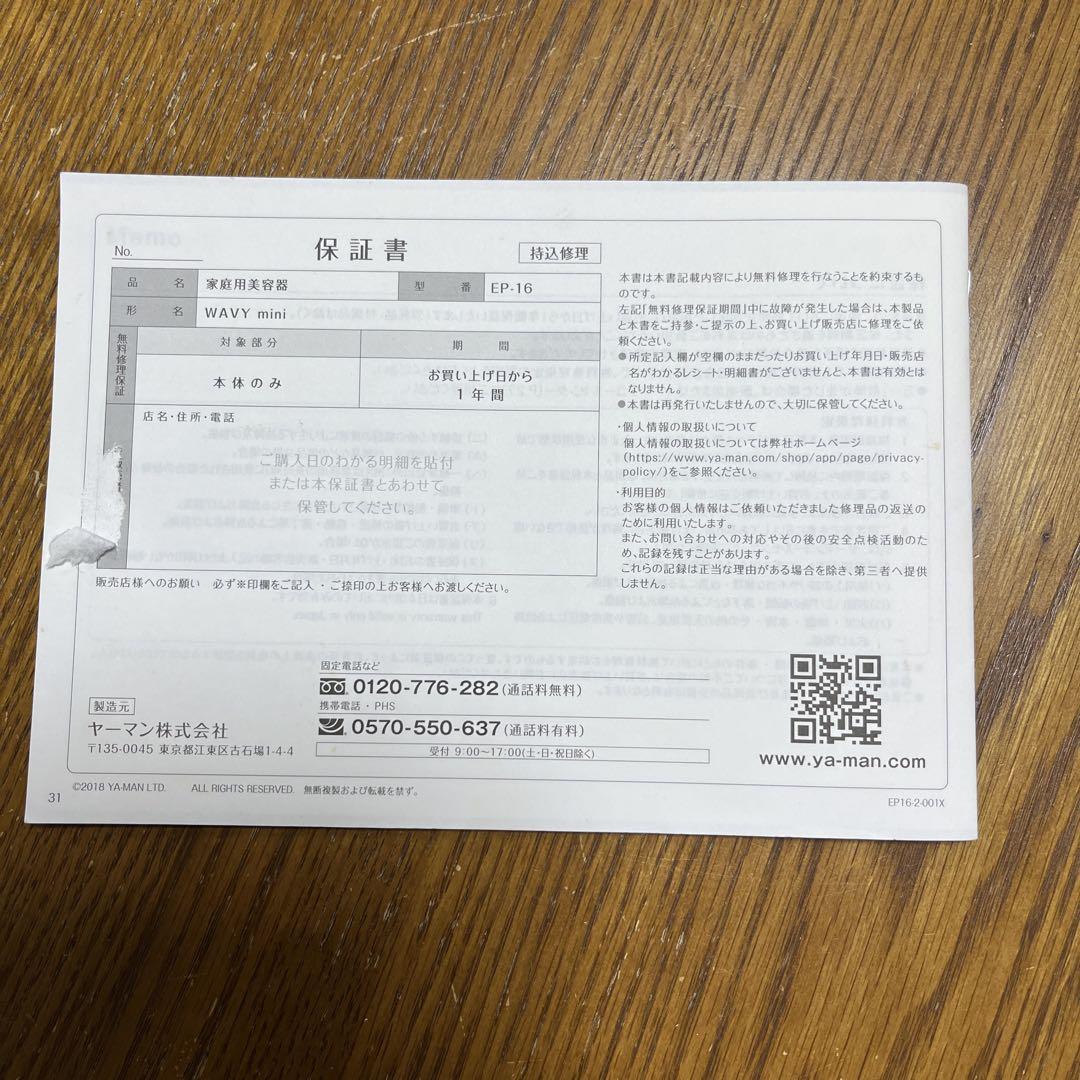 No.
保証書
持込修理
品名 家庭用美容器 型番 EP-16
形名 WAVY mini
無料修理保証
対象部分 期間
本体のみ お買い上げ日から
1年間
店名・住所・電話
ご購入日のわかる明細を貼付
または本保証書とあわせて
保管してください。
販売店様へのお願い 必ず※印欄をご記入・ご捺印の上お客様へお渡しください。
本書は本書記載内容により無料修理を行なうことを約束するも
のです。
左記「無料修理保証期間」中に故障が発生した場合は、本製品
と本書をご持参・ご提示の上、お買い上げ販売店に修理をご依
頼ください。
●所定記入欄が空欄のままだったりお買い上げ年月日・販売店
名がわかるレシート・明細書がございませんと、本書は有効とは
なりません。
●本書は再発行いたしませんので、大切に保管してください。
・個人情報の取扱いについて
個人情報の取扱いについては弊社ホームページ
(https://www.ya-man.com/shop/app/page/privacy-
policy/)をご参照ください。
・利用目的
お客様の個人情報はご依頼いただきました修理品の返送の
ために利用いたします。
また、お問い合わせへの対応やその後の安全点検活動のた
め、記録を残すことがあります。
これらの記録は正当な理由がある場合を除き、第三者へ提供
しません。
製造元
ヤーマン株式会社
〒135-0045 東京都江東区古石場1-4-4
固定電話など
0120-776-282(通話料無料)
携帯電話・PHS
0570-550-637(通話料有料)
受付 9:00〜17:00(土・日・祝日除く)
www.ya-man.com
©2018 YA-MAN LTD. ALL RIGHTS RESERVED. 無断複製および転載を禁ず。
31
EP16-2-001X